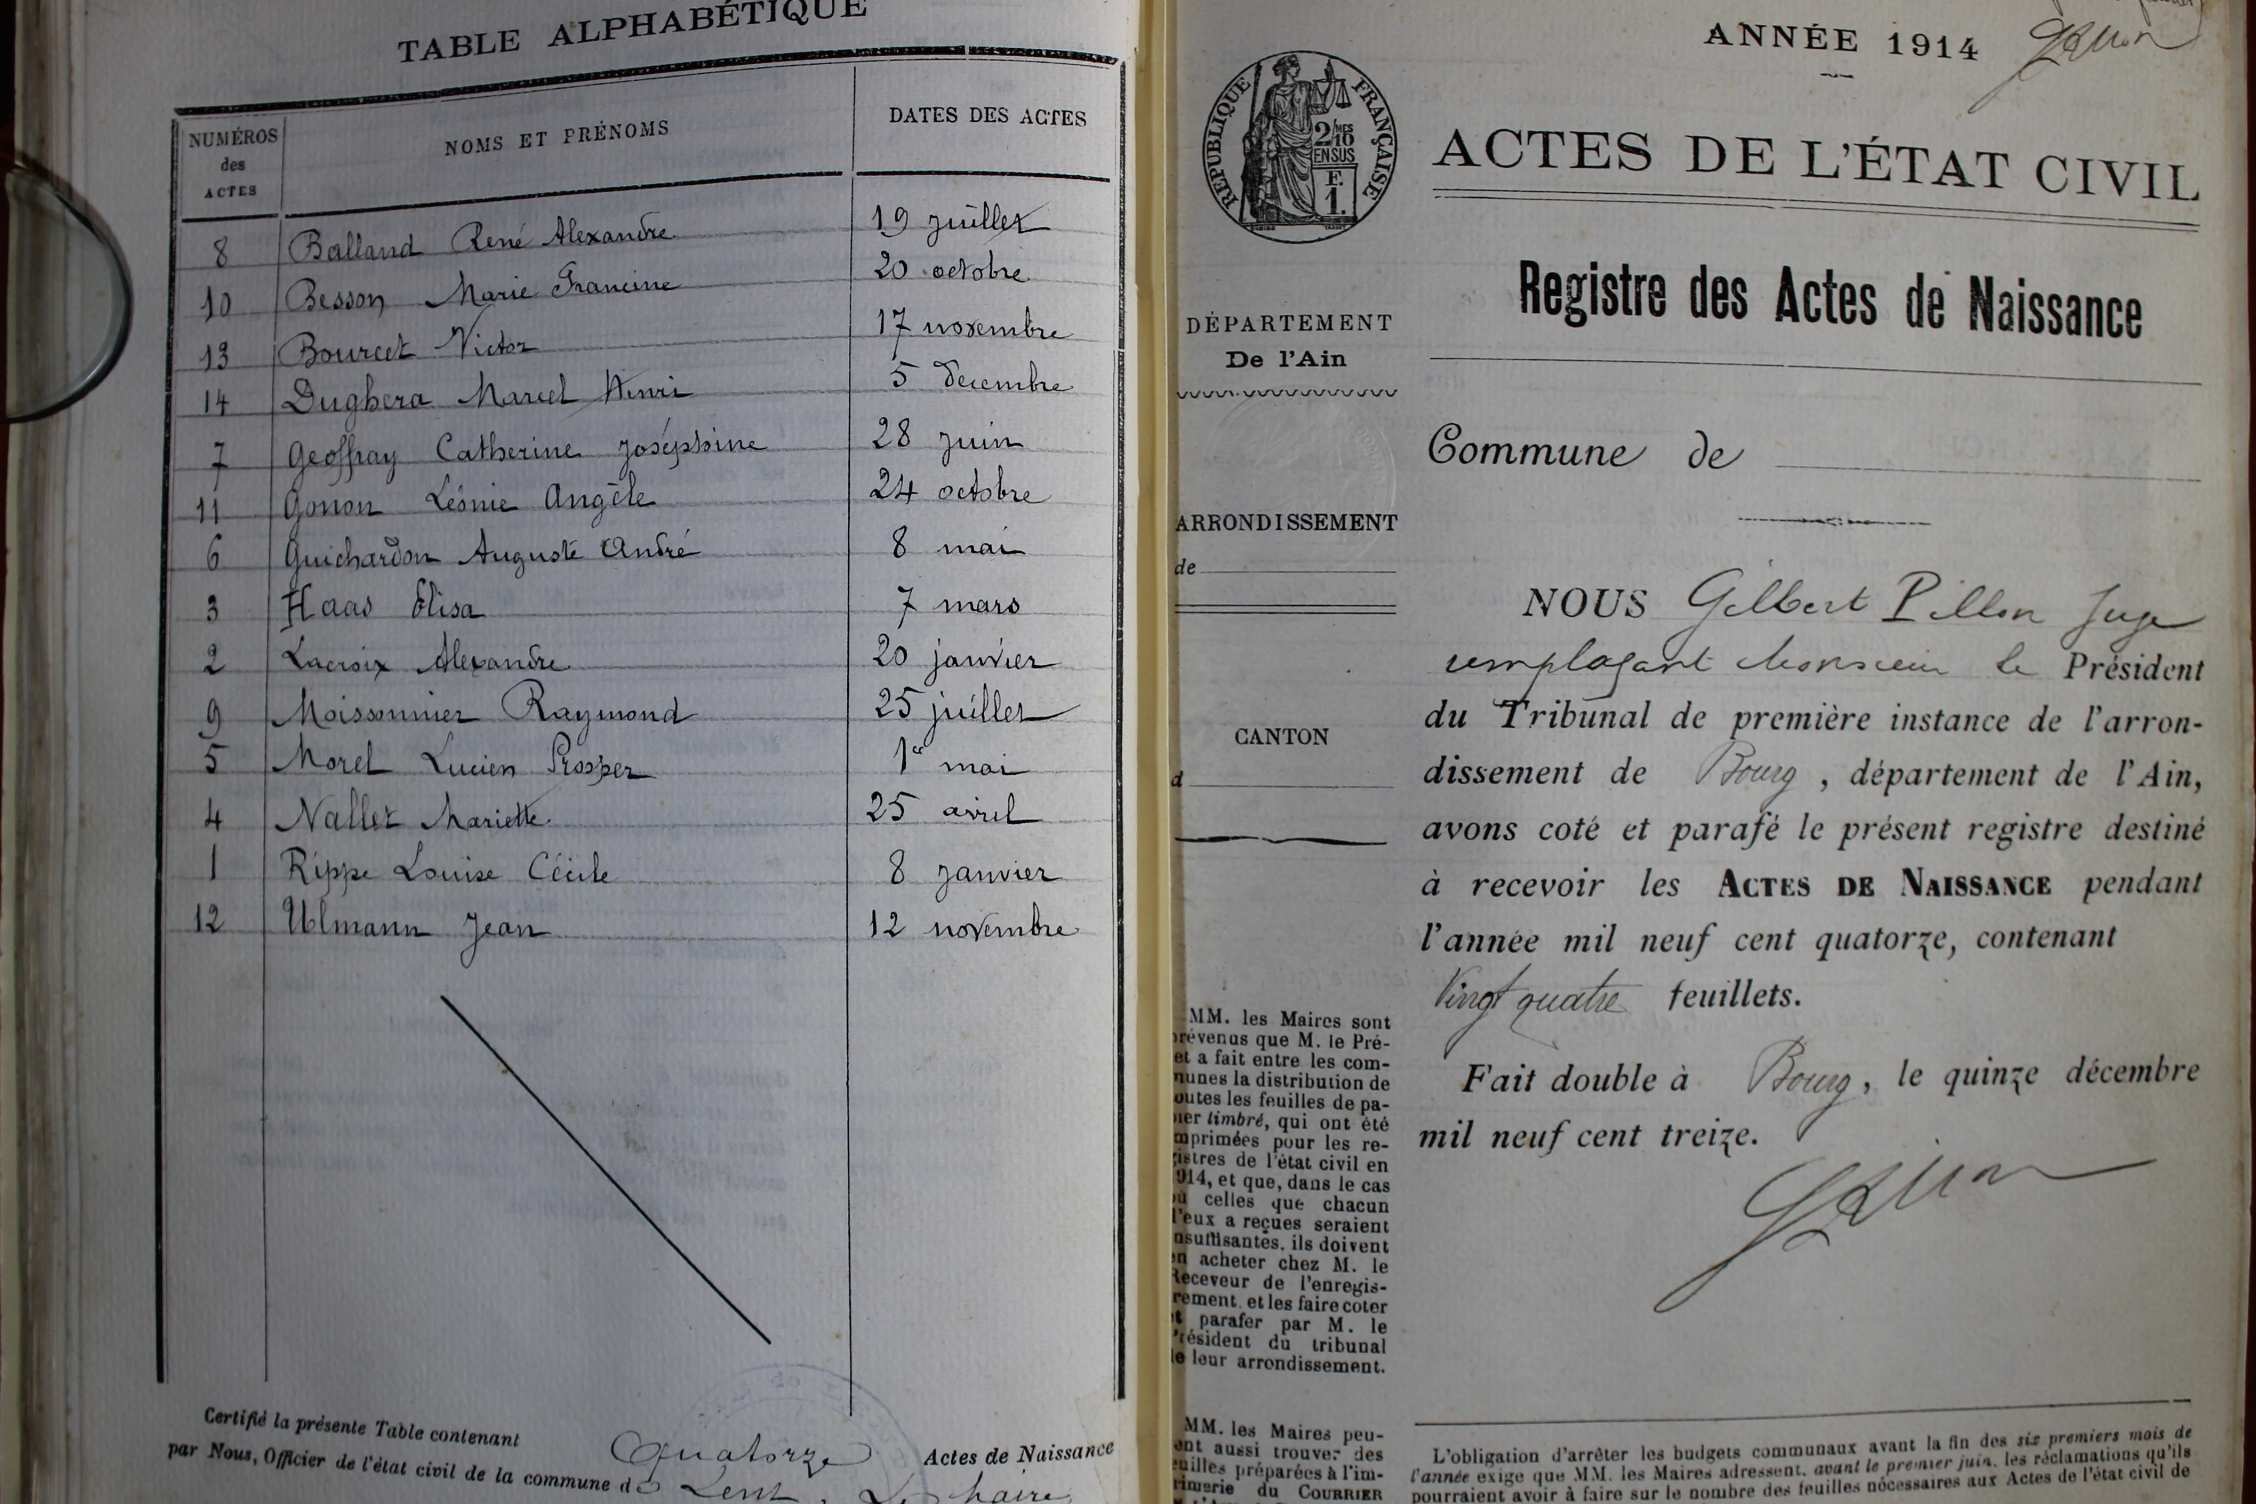 TABLE ALPHABÉTIQUE
NUMÉROS des ACTES
NOMS ET PRÉNOMS
DATES DES ACTES
8 Balland René Alexandre 19 juillet
10 Besson Marie Francine 20 octobre
13 Bourcet Victor 17 novembre
14 Dughera Marcel Henri 5 décembre
7 Geoffray Catherine Joséphine 28 juin
11 Gonon Léonie Angèle 24 octobre
6 Guichardon Auguste André 8 mai
3 Haas Elisa 7 mars
2 Lacroix Alexandre 20 janvier
9 Moissonnier Raymond 25 juillet
5 Morel Lucien Prosper 1er mai
4 Nallet Mariette 25 avril
1 Rippe Louise Cécile 8 janvier
12 Ulmann Jean 12 novembre
Certifié la présente Table contenant quatorze Actes de Naissance
par Nous, Officier de l'état civil de la commune de Lent, Le Maire
ANNÉE 1914
RÉPUBLIQUE FRANÇAISE
2/10 MES
EN SUS
F.
1.
ACTES DE L'ÉTAT CIVIL
Registre des Actes de Naissance
DÉPARTEMENT
De l'Ain
Commune de
ARRONDISSEMENT
de
CANTON
d
NOUS Gilbert Pillon Juge
remplaçant Monsieur le Président
du Tribunal de première instance de l'arron-
dissement de Bourg, département de l'Ain,
avons coté et parafé le présent registre destiné
à recevoir les ACTES DE NAISSANCE pendant
l'année mil neuf cent quatorze, contenant
Vingt quatre feuillets.
Fait double à Bourg, le quinze décembre
mil neuf cent treize.
MM. les Maires sont
prévenus que M. le Pré-
et a fait entre les com-
munes la distribution de
outes les feuilles de pa-
pier timbré, qui ont été
mprimées pour les re-
gistres de l'état civil en
1914, et que, dans le cas
où celles que chacun
d'eux a reçues seraient
nsuffisantes, ils doivent
en acheter chez M. le
Receveur de l'enregis-
rement, et les faire coter
et parafer par M. le
Président du tribunal
de leur arrondissement.
MM. les Maires peu-
ent aussi trouver des
euilles préparées à l'im-
rimerie du COURRIER
L'obligation d'arrêter les budgets communaux avant la fin des six premiers mois de
l'année exige que MM. les Maires adressent, avant le premier juin, les réclamations qu'ils
pourraient avoir à faire sur le nombre des feuilles nécessaires aux Actes de l'état civil de